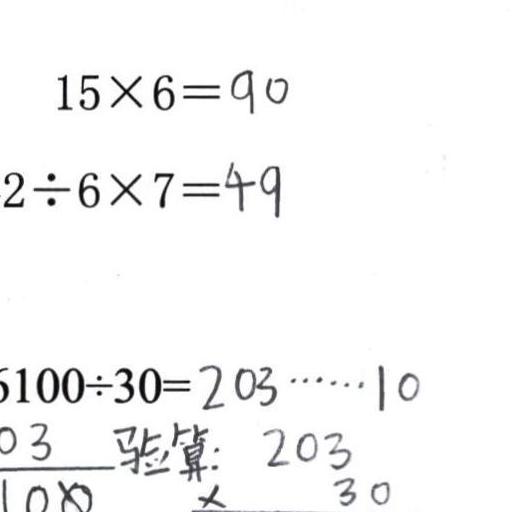 15×6=90
2÷6×7=49
6100÷30=203……10
03 验算: 203
100 × 30